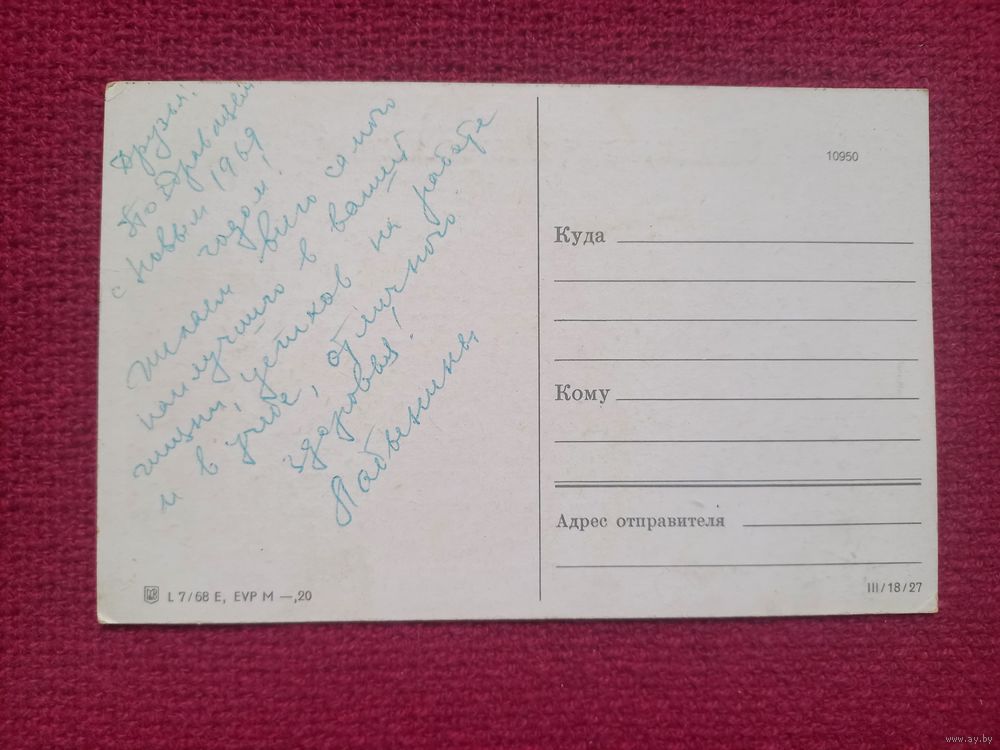 Друзья!
Поздравляем
с Новым 1969
годом!
Желаем всего самого
наилучшего в вашей
жизни, успехов на работе
и в учебе, отличного
здоровья!
L 7/68 E, EVP M —,20
10950
Куда
Кому
Адрес отправителя
III/18/27
www.ay.by